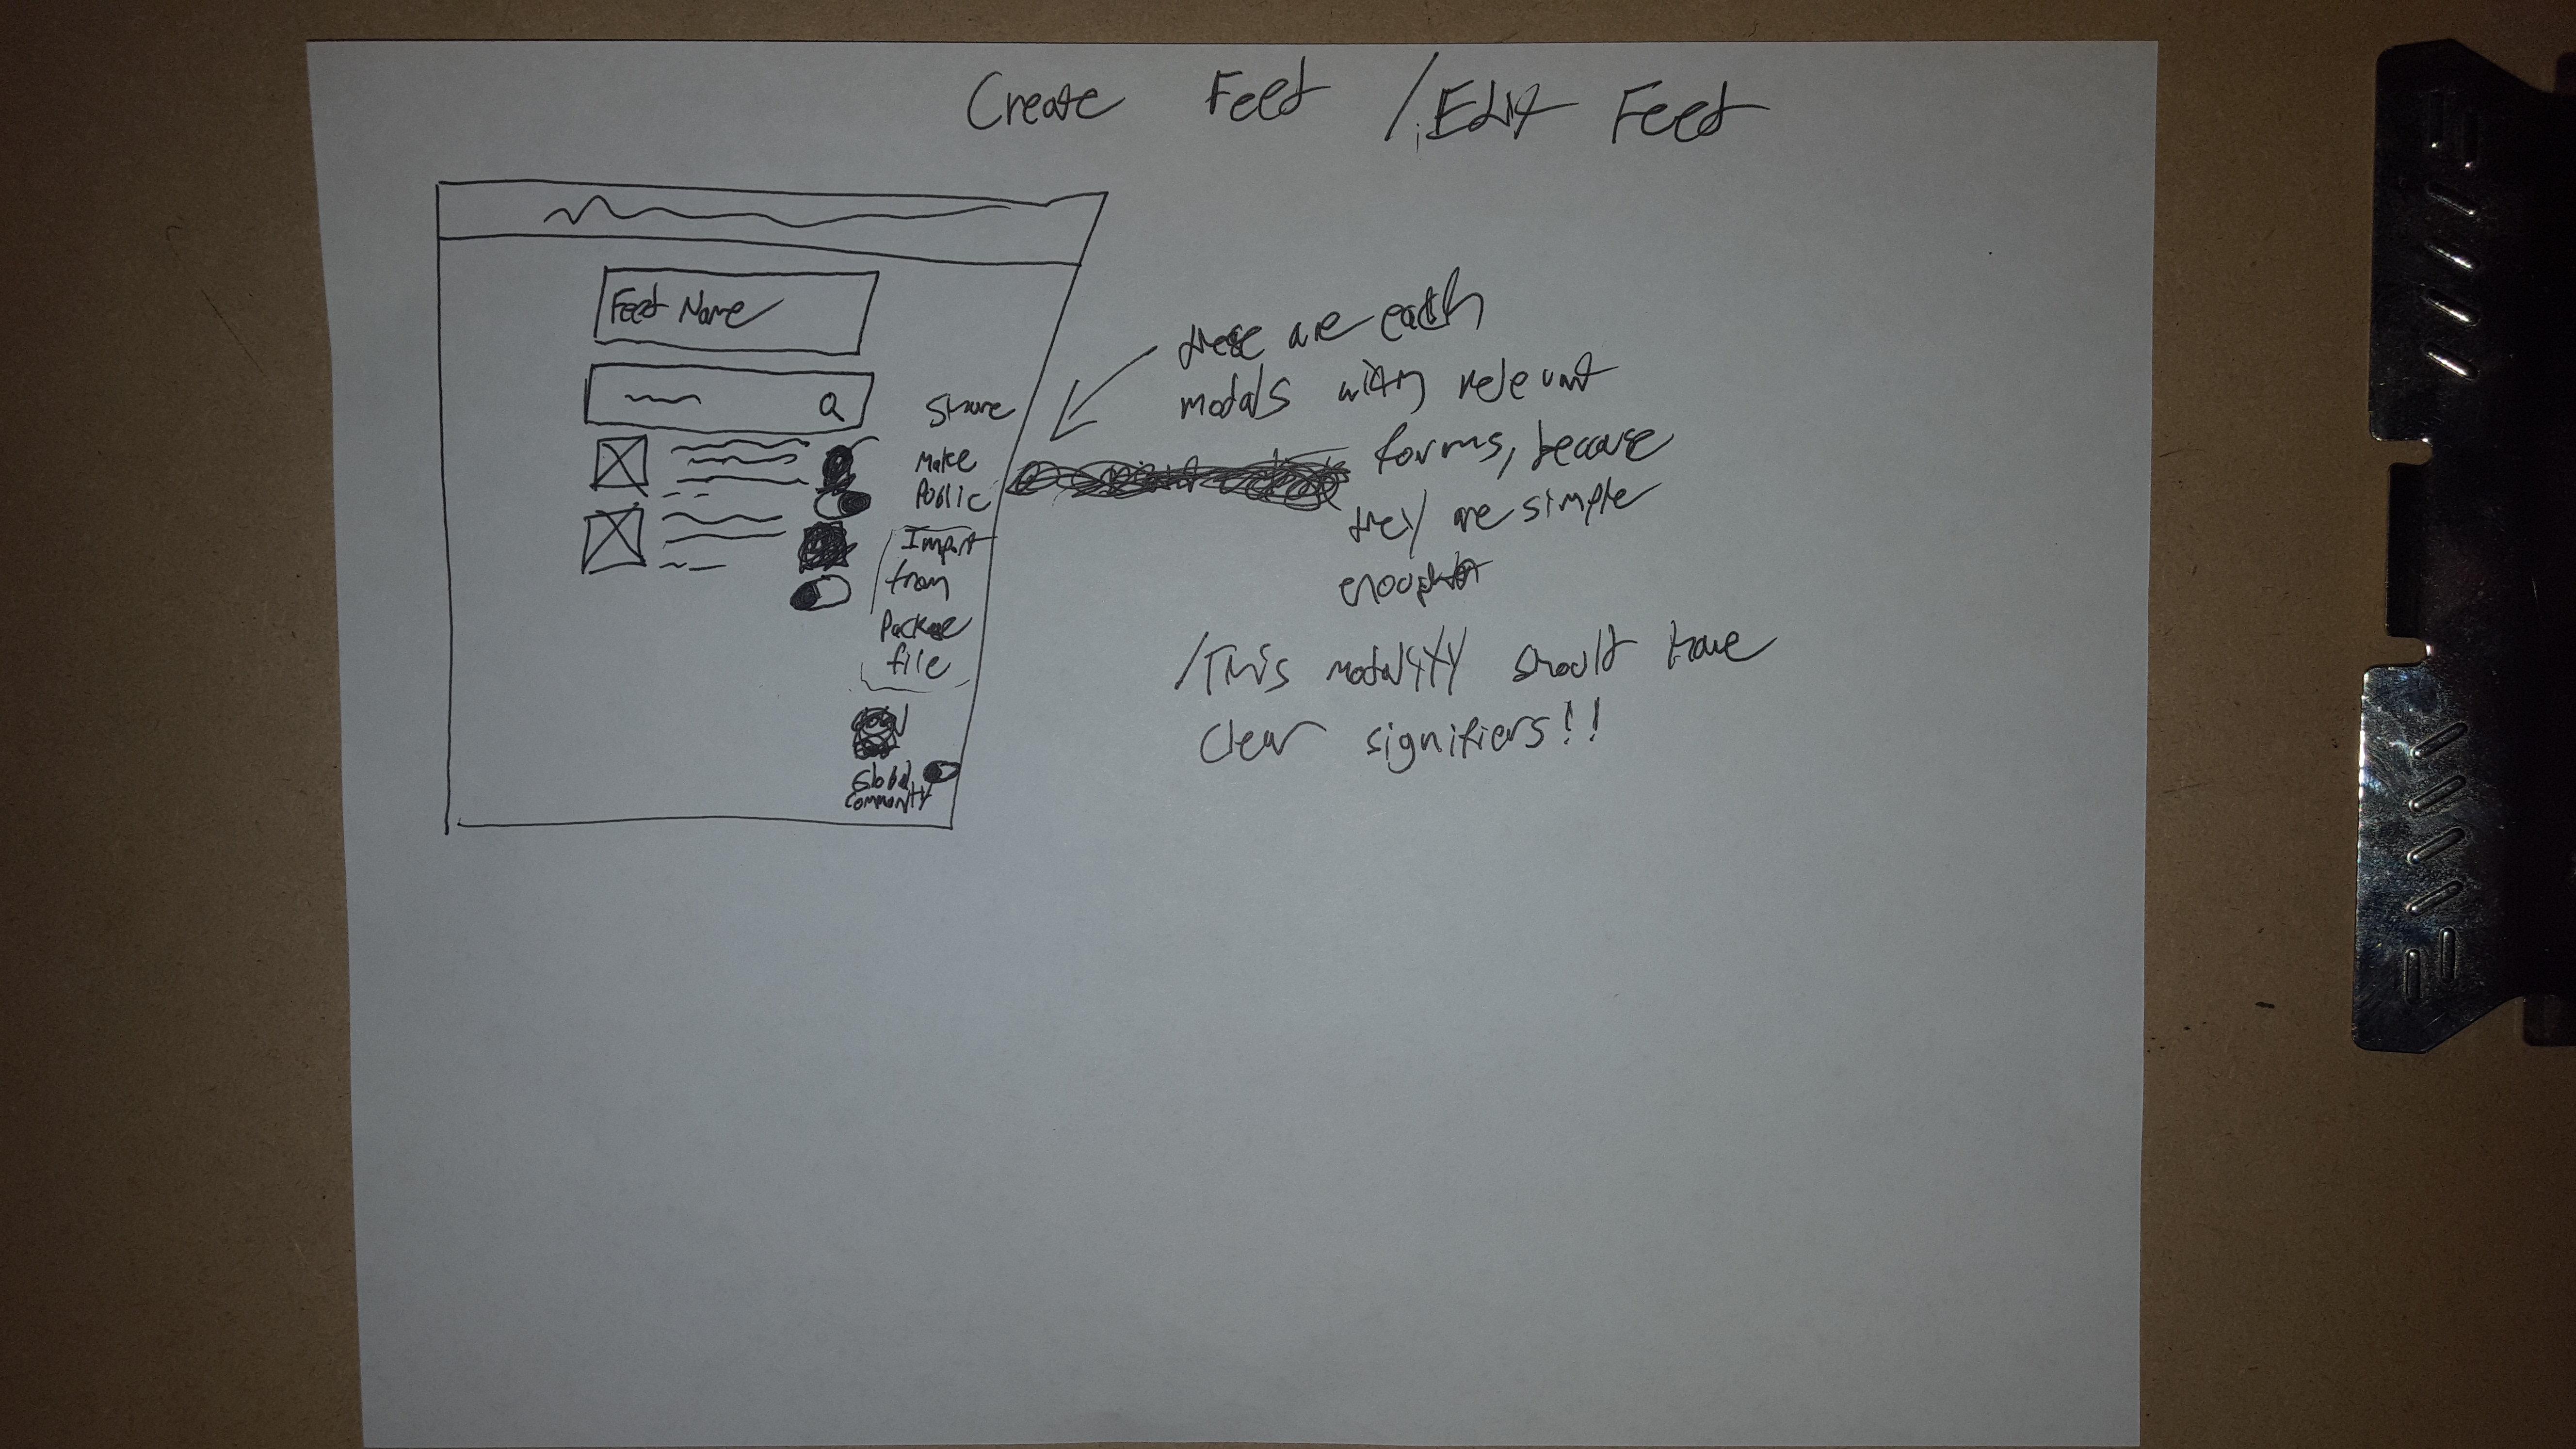 Create Feed / Edit Feed
Feed Name
Share
Make
Public
Import
from
Package
file
Global
Community
these are each
modals with relevant
forms, because
they are simple
enough
/This modality should have
clear signifiers!!